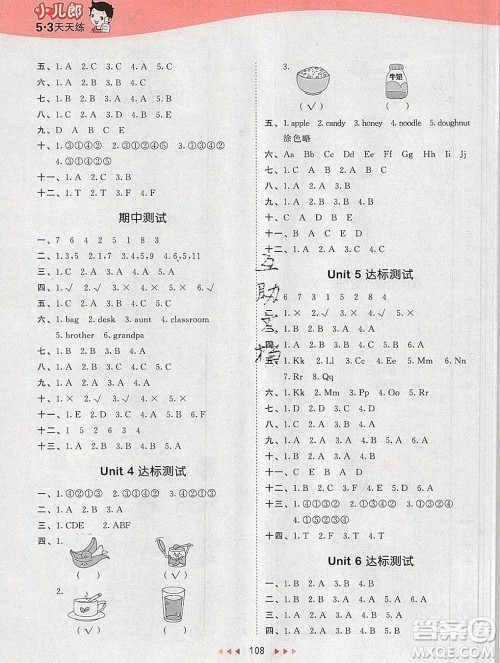 小儿郎
5·3天天练
五、1. A 2. C 3. C 4. A 5. C
六、1. B 2. A 3. B 4. A 5. B
七、1. B 2. A 3. B 4. A 5. A
八、1. A 2. C 3. A 4. B 5. C
九、D A B C E
十、1. ③①④② 2. ③①④②
十一、1. A 2. A 3. C 4. A
十二、1. T 2. T 3. F 4. F
期中测试
一、7 6 4 2 5 1 8 3
二、1. 3,5 2. 1,7 3. 1,4,5,9 4. 2,4,5,11
三、1. C 2. A 3. B 4. C 5. A
四、1. √ 2. × 3. √ 4. × 5. × 6. √
六、1. bag 2. desk 3. aunt 4. classroom
5. brother 6. grandpa
七、1. A 2. B 3. B 4. A
八、1. A 2. C 3. A 4. C 5. B
九、1. B 2. C 3. C 4. A 5. A
十、1. C 2. A 3. B 4. B 5. A
十一、1. E 2. D 3. C 4. B 5. A
十二、1. F 2. F 3. T 4. F
十三、1. A 2. B 3. A 4. A 5. A
Unit 4 达标测试
一、1. ④②①③ 2. ④①②③ 3. ②①③④
二、1. A 2. A 3. B 4. B 5. A
三、1. CDE 2. ABF
四、1.
( ) ( √ )
2.
( ) ( √ )
3.
牛奶
( √ ) ( )
五、1. apple 2. candy 3. honey 4. noodle 5. doughnut
涂色略
六、Aa Bb Cc Dd Ee Ff Gg Hh Ii Jj
七、1. E 2. C 3. A 4. B 5. D
八、1. A 2. B 3. B 4. B 5. A
九、1. A 2. B 3. A 4. A 5. A
十、1. B 2. A 3. B 4. B
十一、C A D E B
十二、1. B 2. C 3. A 4. C
Unit 5 达标测试
一、6 7 3 1 5 2 8 4
三、1. B 2. A 3. A 4. B 5. A
五、1. Kk 2. Ll 3. Mm 4. Nn
六、1. B 2. A 3. B 4. A 5. A
七、1. Kk 2. Cc 3. Gg 4. Nn
5. Nn 6. Ff
八、1. D 2. A 3. E 4. C 5. B
九、1. A 2. B 3. B 4. A 5. A
十、1. A 2. B 3. A 4. B 5. A
十一、C E B A D
十二、1. A 2. B 3. B 4. B 5. A
十三、1. ④①③② 2. ①③②④ 3. ①③④②
4. ①⑤②③④
十四、1. A 2. C 3. C 4. B
Unit 6 达标测试
一、1. B 2. A 3. A 4. B 5. B
二、1. B 2. B 3. A 4. A 5. A
三、1. B 2. A 3. B 4. B 5. A
四、1. B 2. A 3. A 4. B 5. A
五、1. A 2. A 3. B 4. A
互助
108
答案圈
MXQE.COM